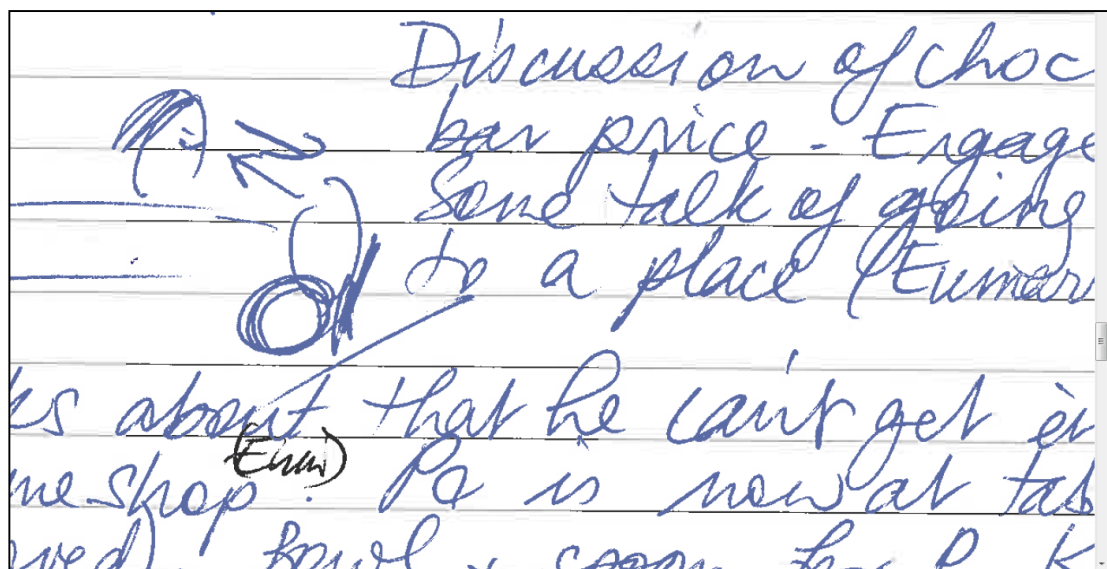 Discussion of choc
bar price - Engage
Some talk of going
to a place (Eumar
ks about that he can't get in
me shop. Pa is now at tab
Bowl + spoon